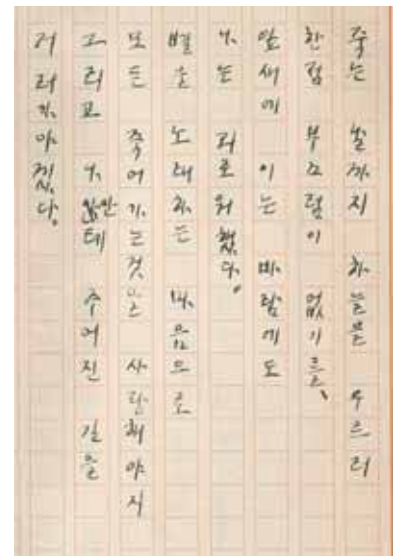 죽는 날까지 하늘을 우르러
한점 부끄럼이 없기를、
잎새에 이는 바람에도
나는 괴로워했다。
별을 노래하는 마음으로
모든 죽어가는것을 사랑해야지
그리고 나안테 주어진 길을
거러가야겠다。